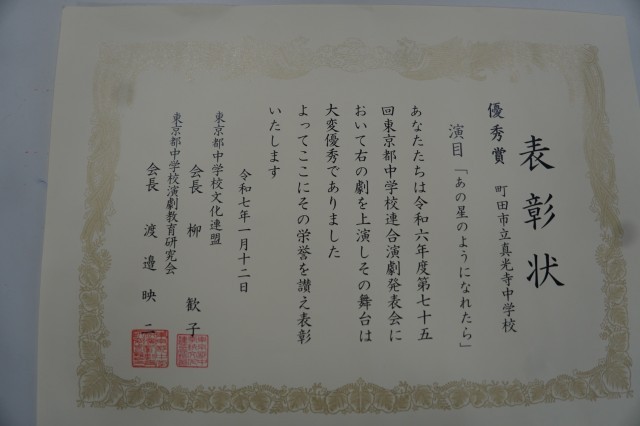 表彰状
優秀賞 町田市立真光寺中学校
演目「あの星のようになれたら」
あなたたちは令和六年度第七十五
回東京都中学校連合演劇発表会に
おいて右の劇を上演しその舞台は
大変優秀でありました
よってここにその栄誉を讃え表彰
いたします
令和七年一月十二日
東京都中学校文化連盟
会長 柳 歓子
東京都中学校演劇教育研究会
会長 渡邉映二